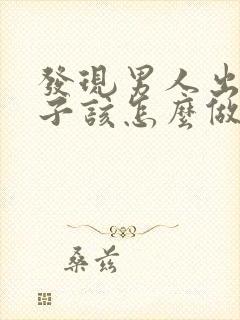 發現男人出
子該怎麼做
桑兹